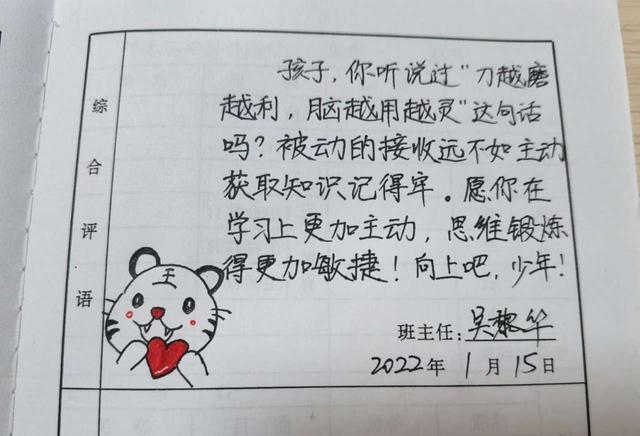 综合评语
孩子，你听说过“刀越磨
越利，脑越用越灵”这句话
吗？被动的接收远不如主动
获取知识记得牢。愿你在
学习上更加主动，思维锻炼
得更加敏捷！向上吧，少年！
王
班主任：吴黎华
2022年 1月15日